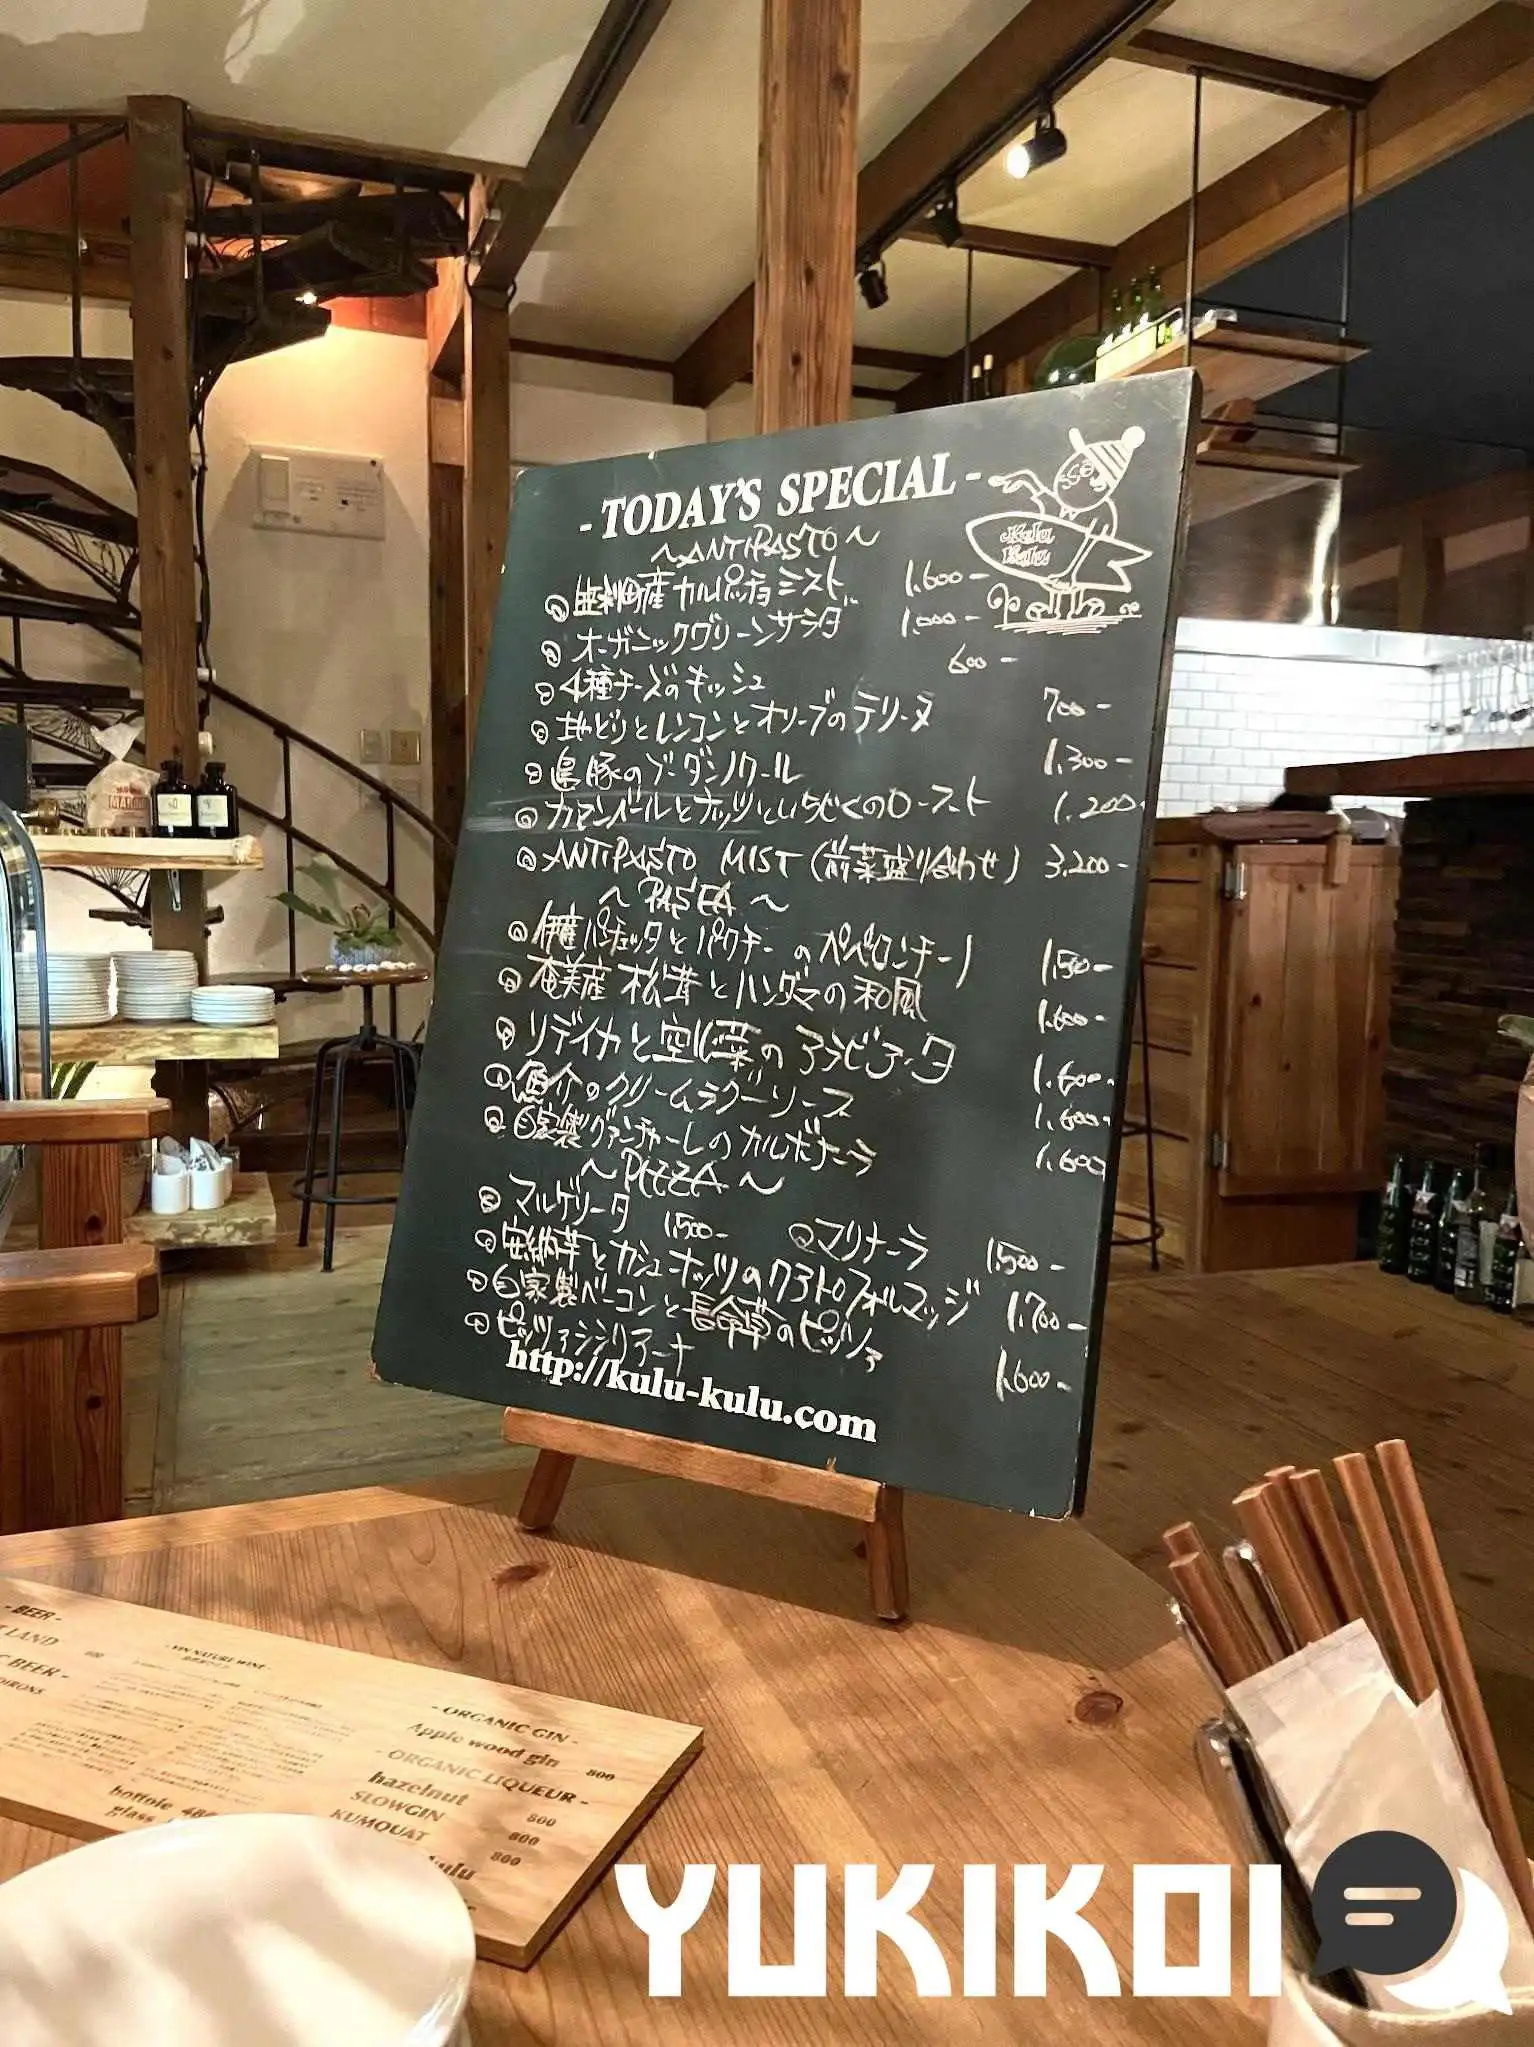 - TODAY'S SPECIAL -
Kulu Kulu
~ ANTIPASTO ~
カルパッチョミスト 1.600-
オーガニックグリーンサラダ 1.000-
4種チーズのキッシュ 600-
地どりとレンコンとオリーブのテリーヌ 700-
島豚のブーダンノワール 1.300-
カマンベールとナッツといちじくのロースト 1.200-
ANTIPASTO MIST (前菜盛り合わせ) 3.200-
~ PASTA ~
パンチェッタとパクチーのペペロンチーノ 1.500-
奄美産 松茸とハンダマの和風 1.600-
リデイカと空心菜のアラビアータ 1.600-
魚介のクリームラグーソース 1.600-
自家製グアンチャーレのカルボナーラ 1.600
~ PIZZA ~
マルゲリータ 1.500- マリナーラ 1.500-
安納芋とカシューナッツのクアトロフォルマッジ 1.700-
自家製ベーコンと長命草のピッツァ 1.600-
ピッツァシシリアーナ
http://kulu-kulu.com
- BEER -
LAND
BEER -
- VIN NATURE WINE -
bottole
glass
- ORGANIC GIN -
Apple wood gin 800
- ORGANIC LIQUEUR -
hazelnut 800
SLOWGIN 800
KUMQUAT 800
kulu
YUKIKOI